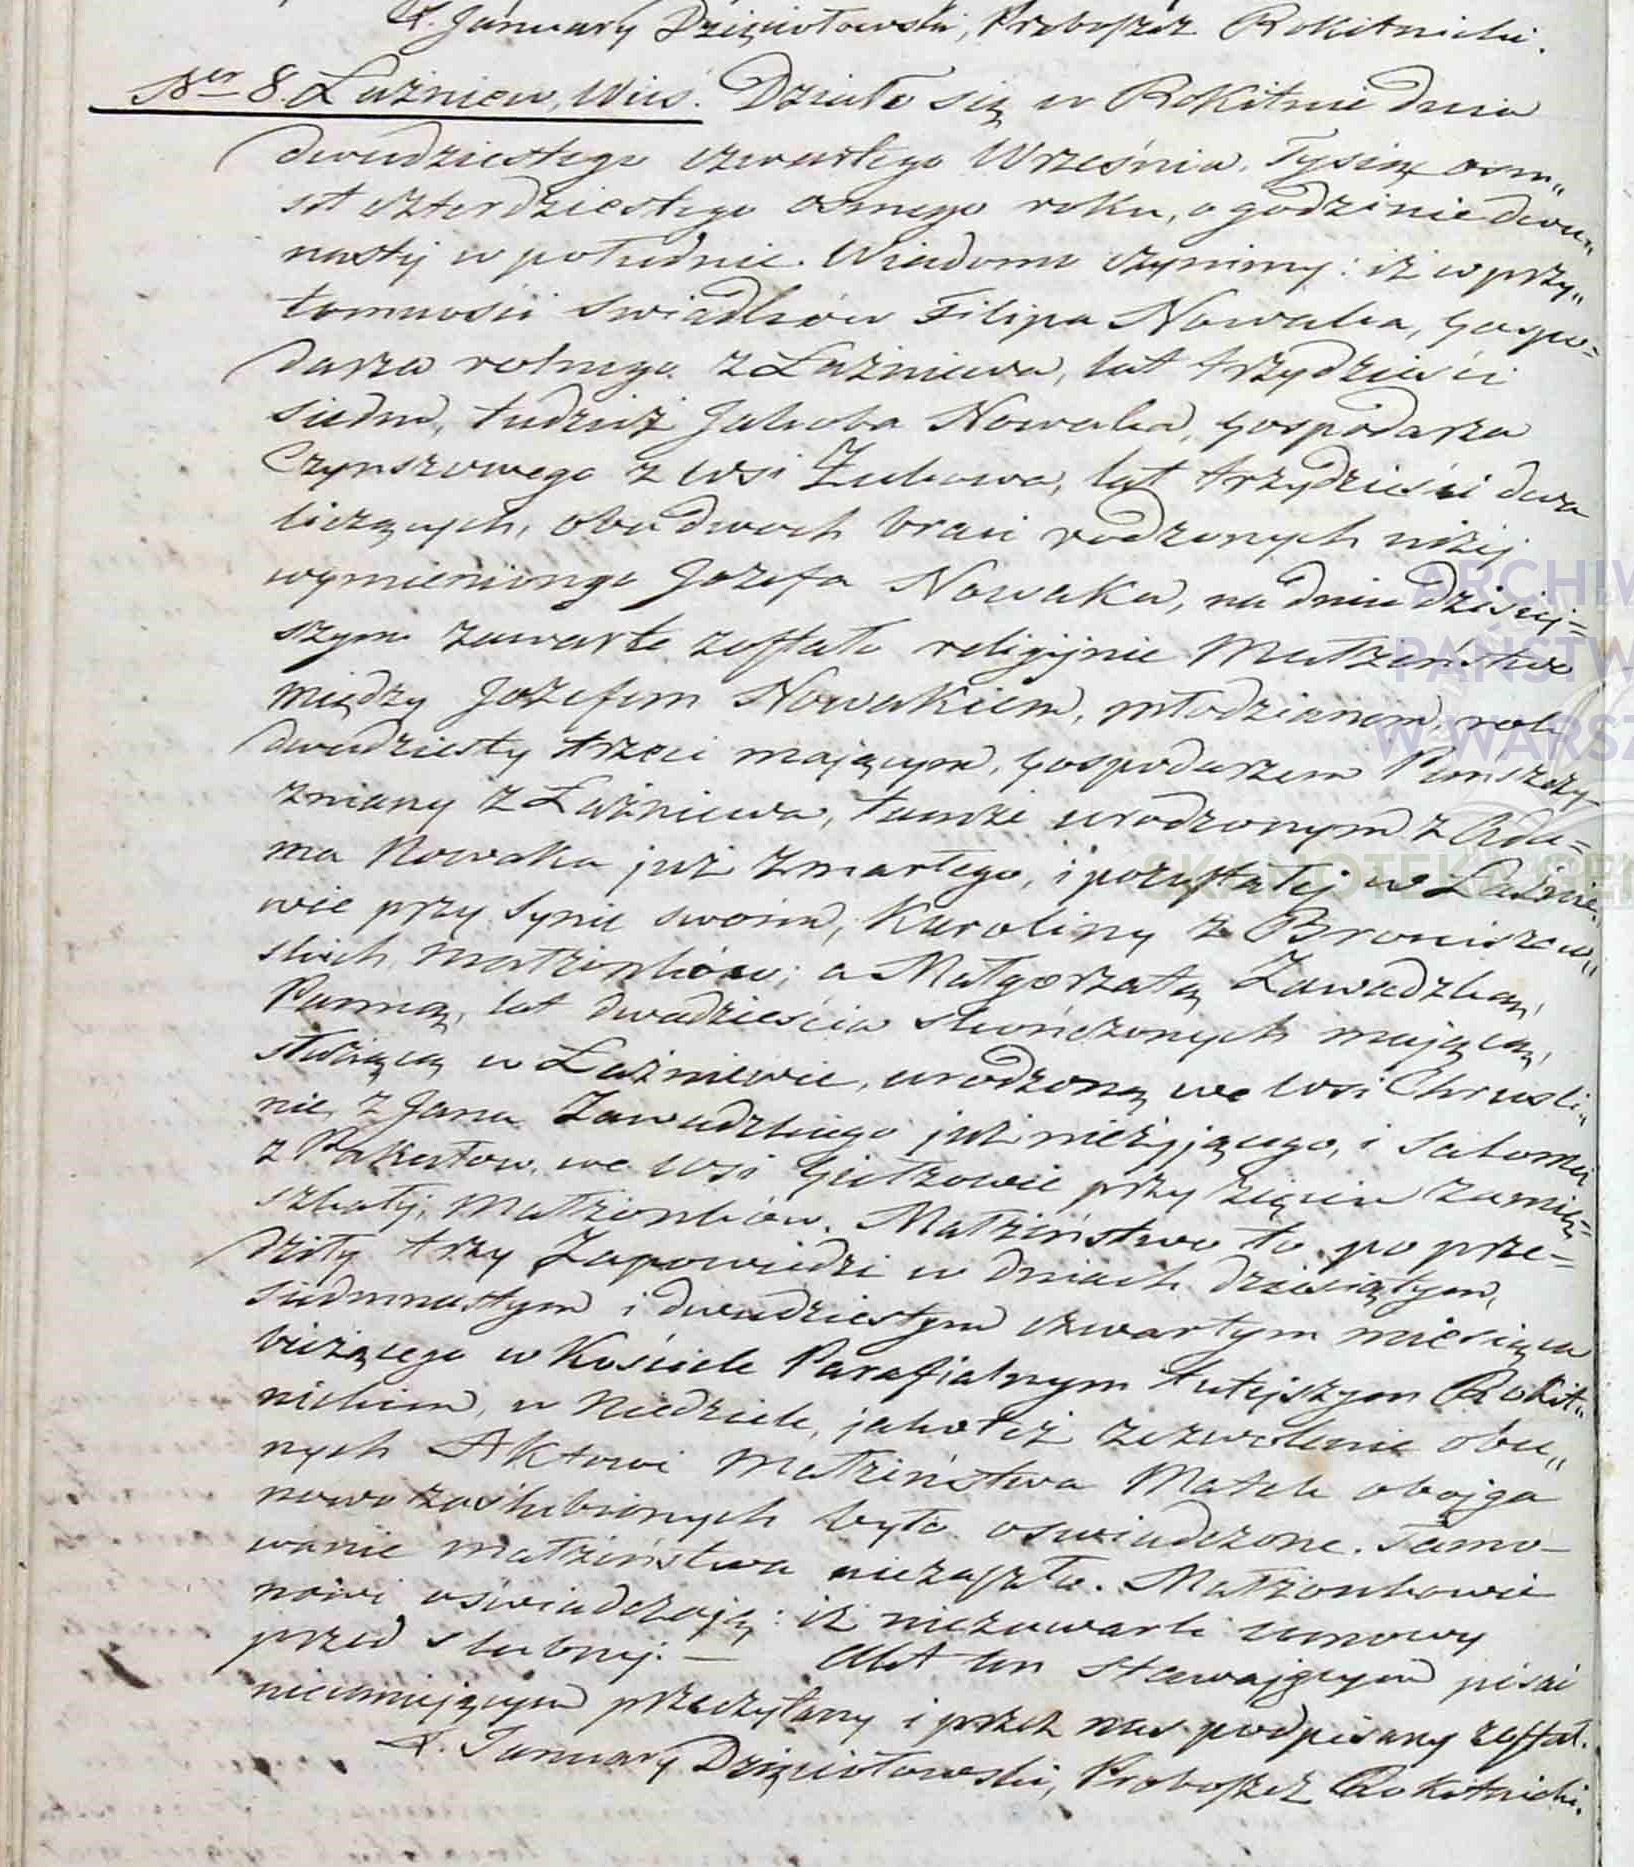 X. January Dzięciołowski, Proboszcz Rokitnicki.
Ner 8. Łaźniew, Wieś. Działo się w Rokitnie dnia
dwudziestego czwartego Września, Tysiąc osm„
set czterdziestego osmego roku, o godzinie dwu„
nastej w południe. Wiadomo czynimy: iż w przy„
tomności swiadków Filipa Nowaka, Gospo=
darza rolnego z Łaźniewa, lat trzydzieści
siedm, tudzież Jakóba Nowaka, Gospodarza
Czynszowego z wsi Żukowa, lat trzydzieści dwa
liczących, obudwoch braci rodzonych niżej
wymienionego Jozefa Nowaka, na dniu dzisiej=
szym zawarte zostało religijnie Małżeństwo
między Jozefem Nowakiem, młodzianem, rok
dwudziesty trzeci mającym, Gospodarzem Panszczy-
zniany z Łaźniewa, tamże urodzonym z Ada=
ma Nowaka już zmarłego, i pozostałej w Łaźnie„
wie przy synie swoim, Karoliny z Broniszew„
skich, małżonków; a Małgorzatą Zawadzką,
Panną, lat dwadzieścia skończonych mającą,
służącą w Łaźniewie, urodzoną we wsi Chrusli„
nie, z Jana Zawadzkiego już nieżyjącego, i Salomei
z we wsi przy zięciu zamie=
szkałej, Małżonków. Małżeństwo to poprze=
dziły trzy Zapowiedzi w dniach dziesiątym,
siedmnastym i dwudziestym czwartym miesiąca
bieżącego w Kościele Parafialnym tutejszym Rokit„
nickim, w Niedziele, jakoteż zezwolenie obe„
nych Aktowi Małżeństwa Matek obojga
nowozaślubionych było oswiadczone. Tamo-
wanie małżeństwa niezaszło. Małżonkowie
nowi oświadczają: iż niezawarli umowy
przed slubnej. — Akt ten stawającym pisać
nieumiejącym przeczytany i przez nas podpisany został.
X. January Dzięciołowski, Proboszcz Rokitnicki.
ARCHIW
PAŃSTW
W WARSZ
SKANOTEKA